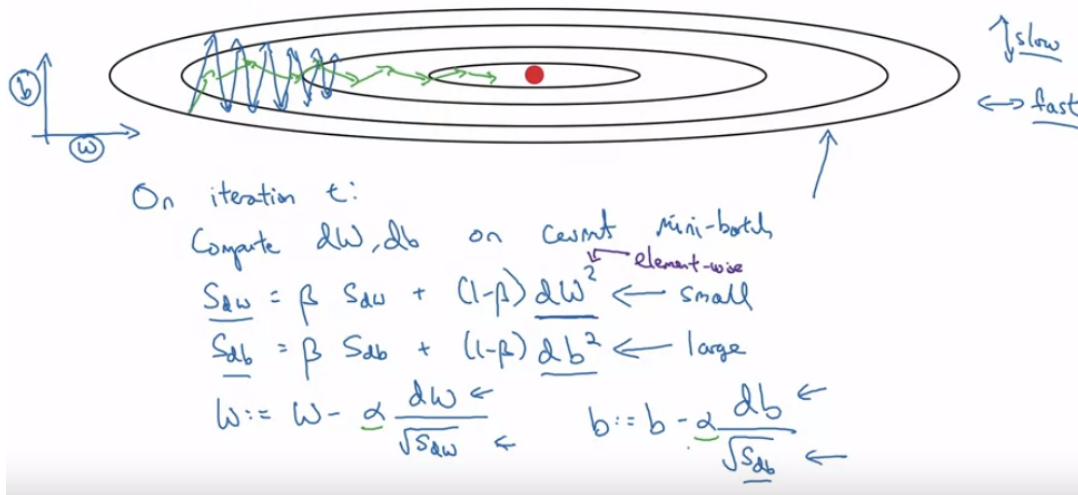 ↕ slow
b
↔ fast
w
On iteration t:
Compute dW, db on current mini-batch
element-wise
S_dw = β S_dw + (1-β) dW² ← small
S_db = β S_db + (1-β) db² ← large
W := W - α dW/√S_dw ← b := b - α db/√S_db ←